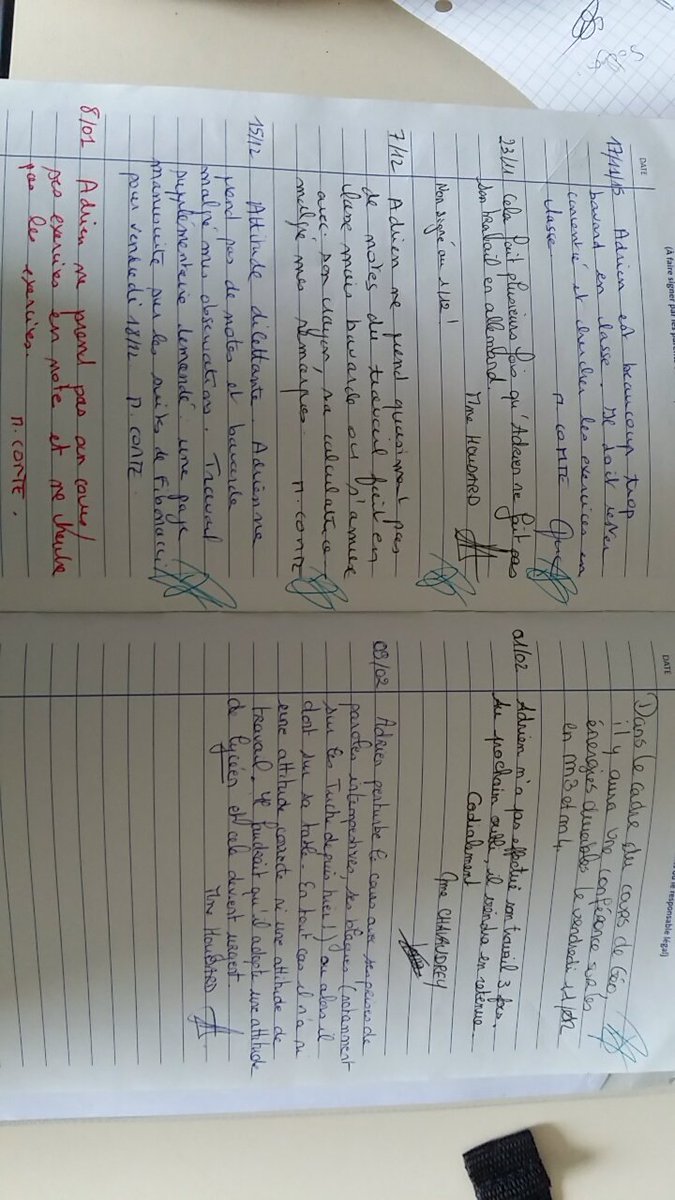 (A faire signer par les
DATE
17/11/15 Adrien est beaucoup trop
bavard en classe. Il doit rester
concentré et chercher les exercices en
classe. M. CONTE
23/11 Cela fait plusieurs fois qu'Adrien ne fait pas
son travail en allemand.
Mme HOUDARD
Non signé au 1/12 !
7/12 Adrien ne prend quasiment pas
de notes du travail fait en
classe mais bavarde ou s'amuse
avec son crayon, sa calculatrice
malgré mes remarques. M. CONTE
15/12 Attitude dilettante. Adrien ne
prend pas de notes et bavarde
malgré mes observations. Travail
supplémentaire demandé : une page
manuscrite sur les suites de Fibonacci
pour vendredi 18/12 M. CONTE.
8/01 Adrien ne prend pas son cours/
ses exercices en note et ne cherche
pas les exercices.
M. CONTE.
ou le responsable légal)
DATE
Dans le cadre du cours de Géo,
il y aura une conférence sur les
énergies durables le vendredi
en M3 et M4.
01/02 Adrien n'a pas effectué son travail 3 fois.
Au prochain oubli, il viendra en retenue.
Cordialement
Mme CHAVAUDREY
09/02 Adrien perturbe le cours avec ses prises de
paroles intempestives, ses blagues (notamment
sur les Tuche depuis hier !) ou alors il
dort sur sa table. En tout cas il n'a ni
une attitude correcte ni une attitude de
travail. Il faudrait qu'il adopte une attitude
de lycéen et cela devient urgent.
Mme HOUDARD